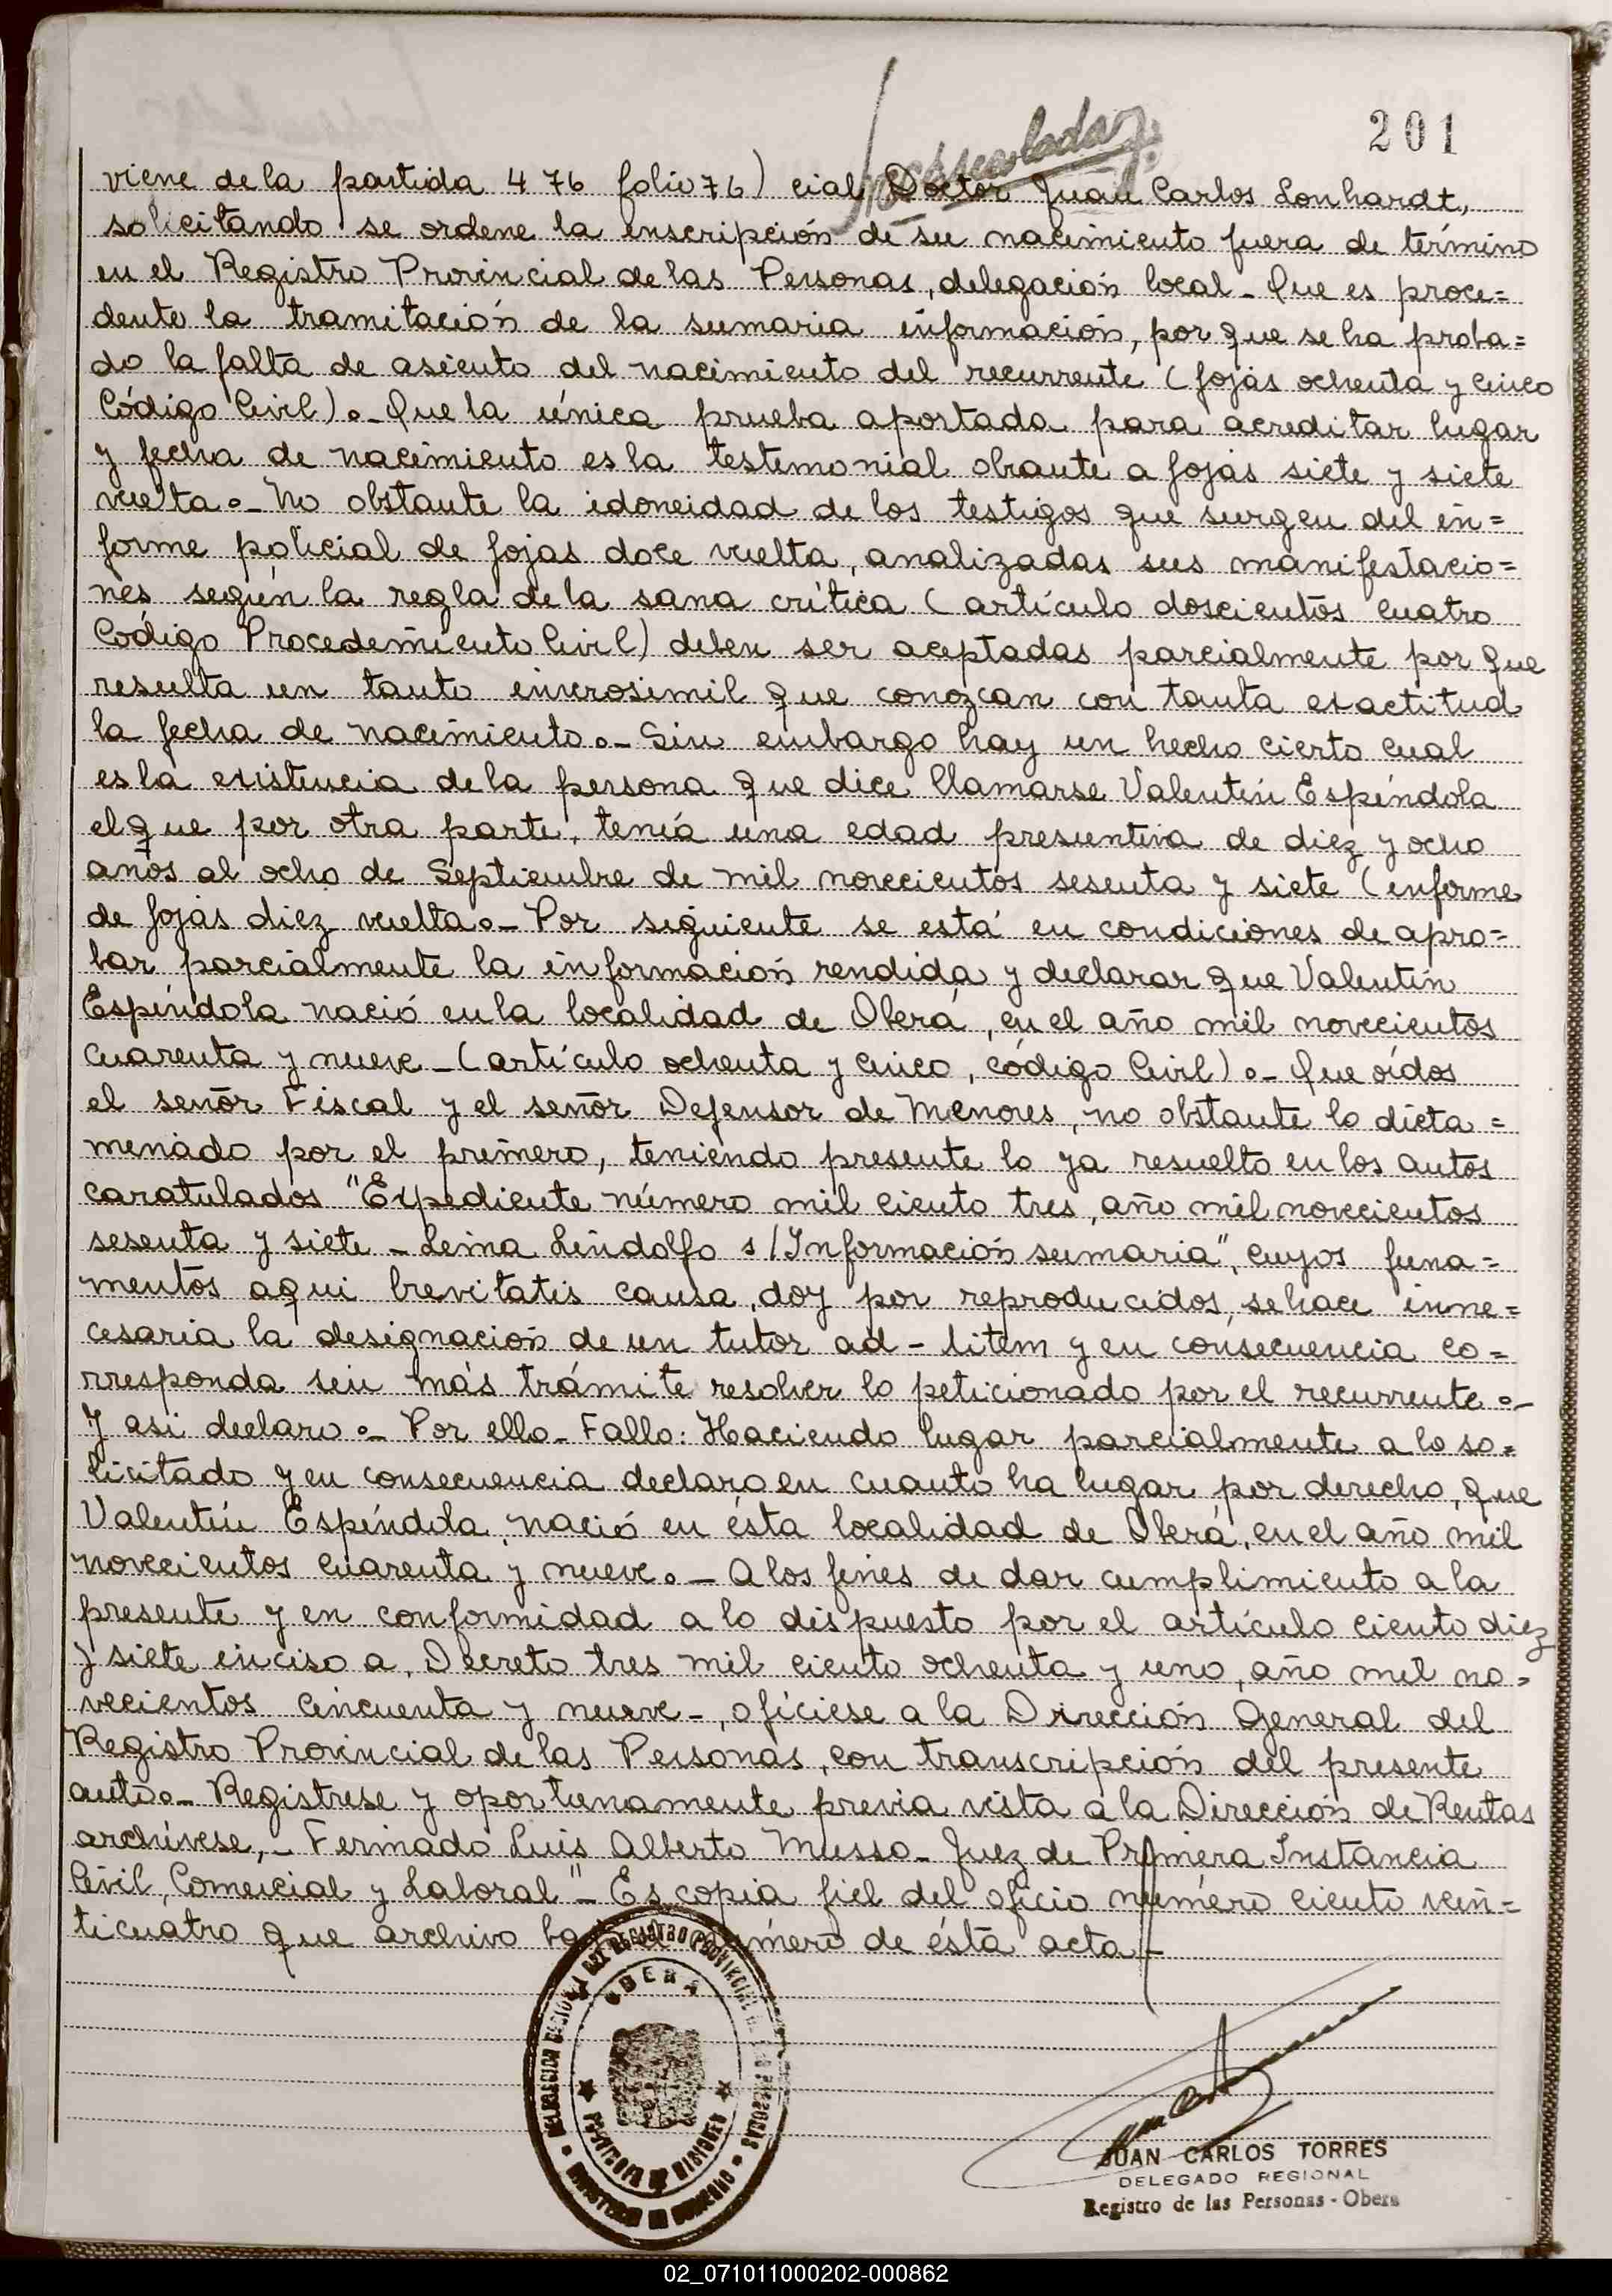 201
viene de la partida 476 folio 76) cial Doctor Juan Carlos Lonhardt,
solicitando se ordene la inscripción de su nacimiento fuera de término
en el Registro Provincial de las Personas, delegación local - Que es proce=
dente la tramitación de la sumaria información, por que se ha proba=
do la falta de asiento del nacimiento del recurrente (fojas ochenta y cinco
Código Civil).- Que la única prueba aportada para acreditar lugar
y fecha de nacimiento es la testimonial obrante a fojas siete y siete
vuelta.- No obstante la idoneidad de los testigos que surgen del in=
forme policial de fojas doce vuelta, analizadas sus manifestacio=
nes según la regla de la sana crítica (artículo doscientos cuatro
Código Procedimiento Civil) deben ser aceptadas parcialmente por que
resulta un tanto inverosimil que conozcan con tanta exactitud
la fecha de nacimiento.- Sin embargo hay un hecho cierto cual
es la existencia de la persona que dice llamarse Valentín Espíndola
el que por otra parte, tenía una edad presuntiva de diez y ocho
años al ocho de Septiembre de mil novecientos sesenta y siete (informe
de fojas diez vuelta.- Por siguiente se está en condiciones de apro=
bar parcialmente la información rendida y declarar que Valentín
Espíndola nació en la localidad de Oberá, en el año mil novecientos
cuarenta y nueve - (artículo ochenta y cinco, código Civil).- Que oídos
el señor Fiscal y el señor Defensor de Menores, no obstante lo dicta=
menado por el primero, teniendo presente lo ya resuelto en los autos
caratulados "Expediente número mil ciento tres, año mil novecientos
sesenta y siete - Leina Lindolfo s/Información sumaria", cuyos funa=
mentos aqui brevitatis causa, doy por reproducidos, se hace inne=
cesaria la designación de un tutor ad-litem y en consecuencia co=
rresponda sin más trámite resolver lo peticionado por el recurrente.-
Y asi declaro.- Por ello - Fallo: Haciendo lugar parcialmente a lo so=
licitado y en consecuencia declaro en cuanto ha lugar por derecho, que
Valentín Espíndola, nació en ésta localidad de Oberá, en el año mil
novecientos cuarenta y nueve.- A los fines de dar cumplimiento a la
presente y en conformidad a lo dispuesto por el artículo ciento diez
y siete inciso a, Decreto tres mil ciento ochenta y uno, año mil no=
vecientos cincuenta y nueve -, ofíciese a la Dirección General del
Registro Provincial de las Personas, con transcripción del presente
auto.- Registrese y oportunamente previa vista a la Dirección de Rentas
archívese,- Firmado Luis Alberto Musso - Juez de Primera Instancia
Civil, Comercial y Laboral" - Es copia fiel del oficio número ciento vein=
ticuatro que archivo número de ésta acta -
OBERA
PROVINCIA DE MISIONES
JUAN CARLOS TORRES
DELEGADO REGIONAL
Registro de las Personas - Obera
02_071011000202-000862